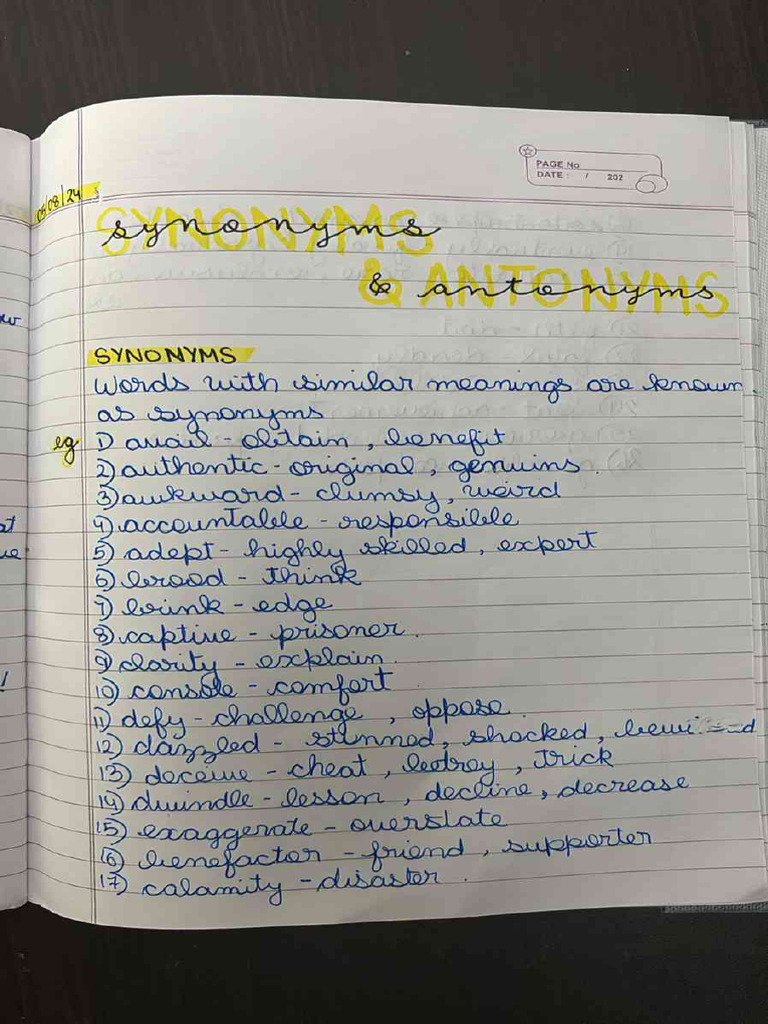 PAGE No
DATE : / 202
05/08/24
SYNONYMS
synonyms
& ANTONYMS
& antonyms
SYNONYMS
Words with similar meanings are known
as synonyms
eg 1) avail - obtain, benefit
2) authentic - original, genuins.
3) awkward - clumsy, weird
4) accountable - responsible
5) adept - highly skilled, expert
6) brood - think
7) brink - edge
8) captive - prisoner.
9) clarity - explain.
10) console - comfort
11) defy - challenge, oppose.
12) dazzled - stunned, shocked,
13) deceive - cheat, betray, trick
14) dwindle - lesson, decline, decrease
15) exaggerate - overstate
16) benefactor - friend, supporter
17) calamity - disaster.